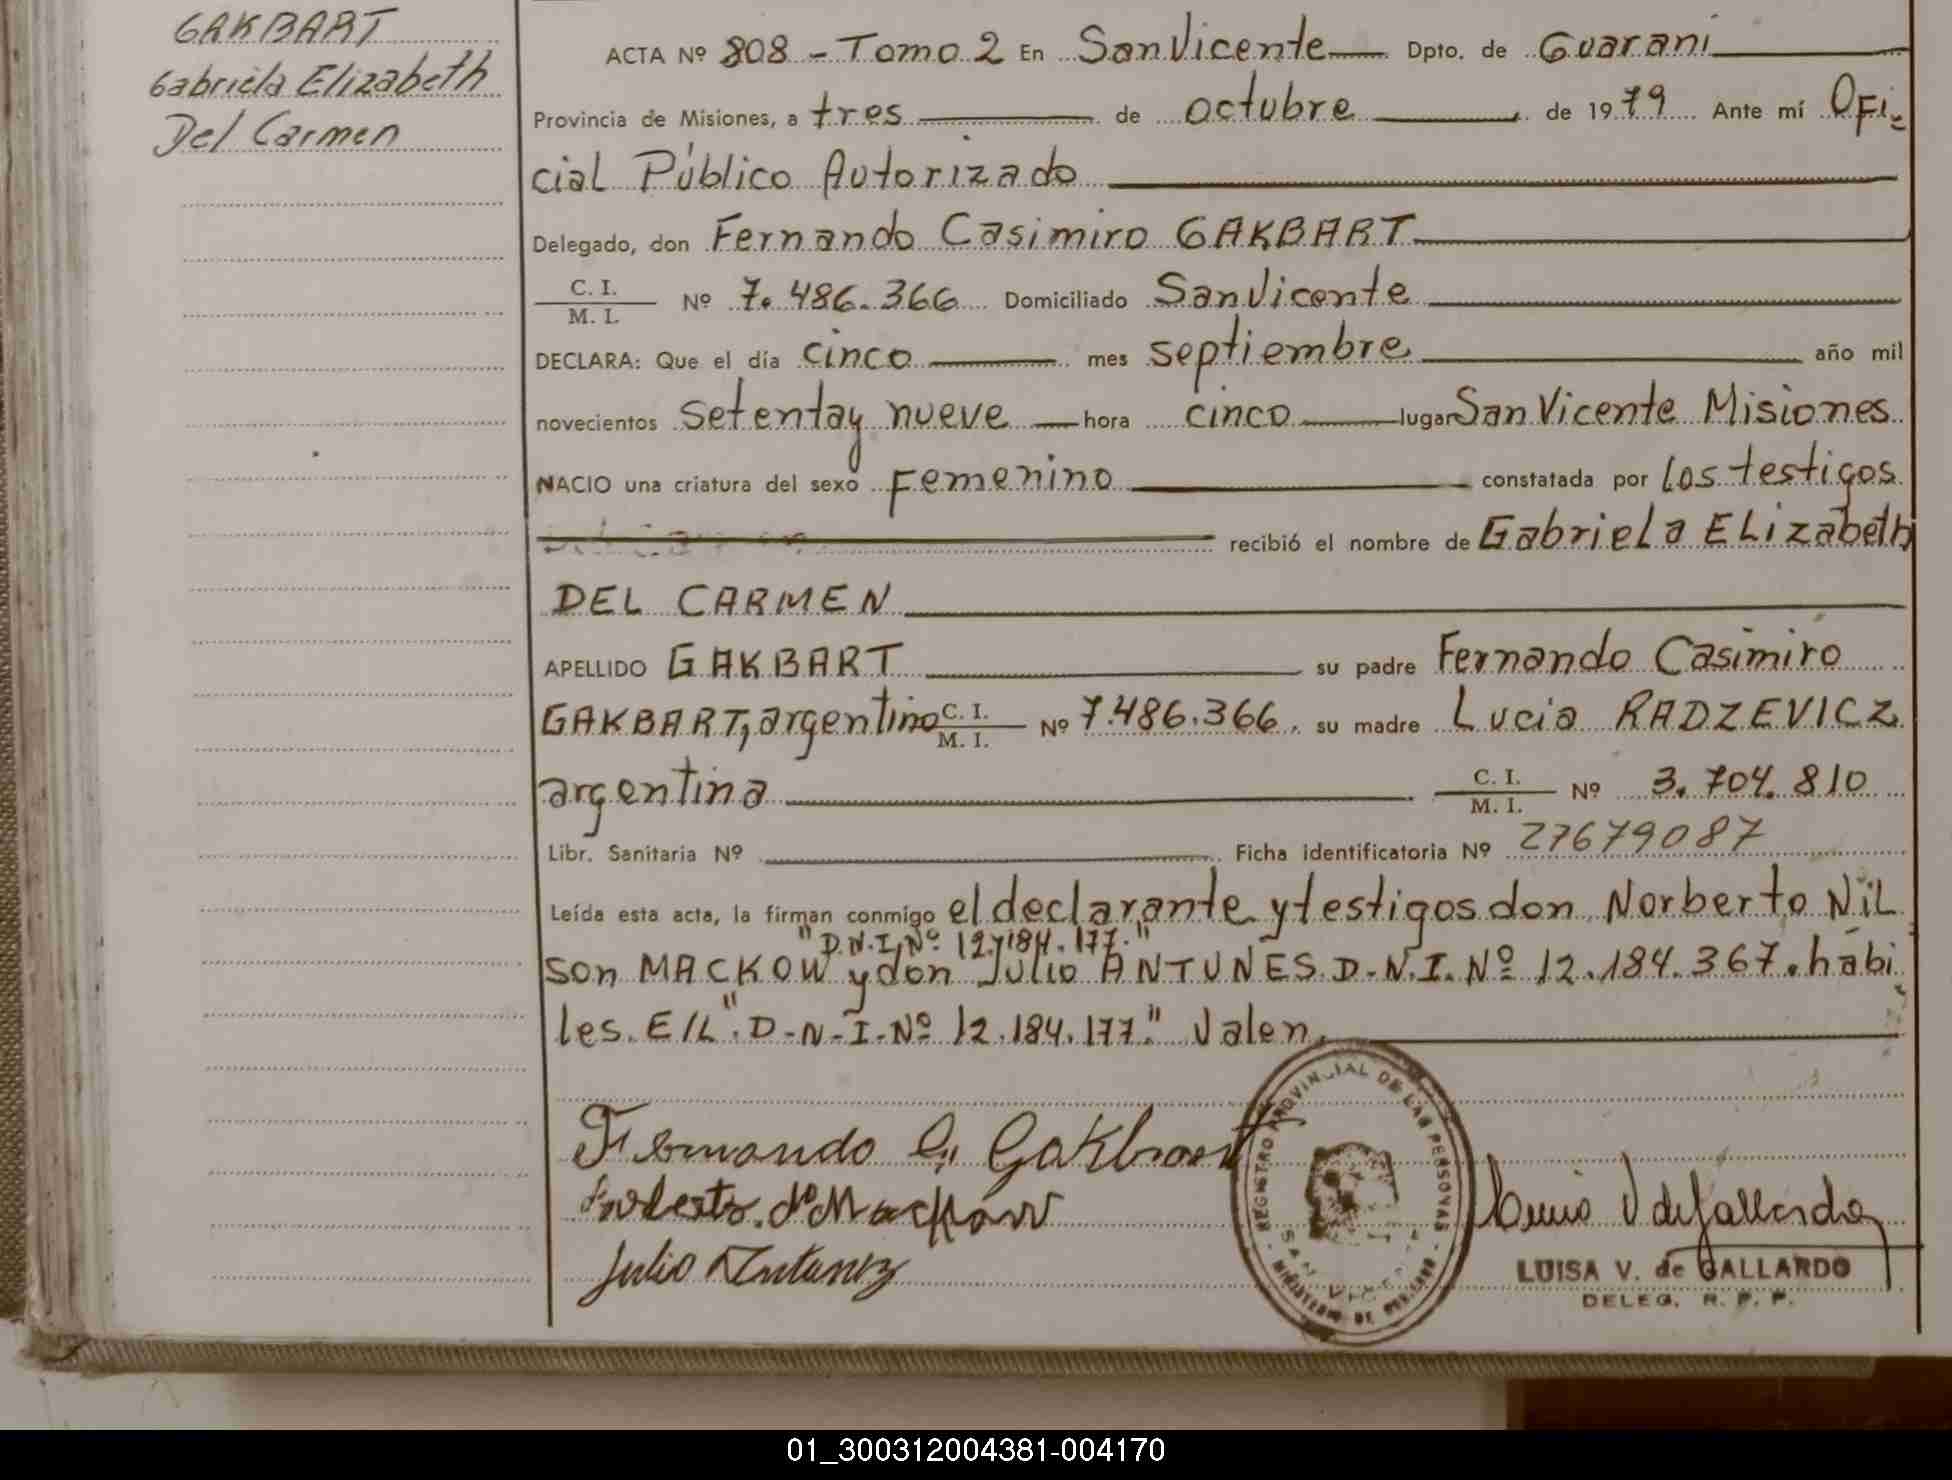 GAKBART
Gabriela Elizabeth
Del Carmen
ACTA Nº 808 - Tomo 2 En San Vicente Dpto. de Guaraní
Provincia de Misiones, a tres de octubre de 1979 Ante mí Ofi-
cial Público Autorizado
Delegado, don Fernando Casimiro GAKBART
C. I.
M. I. Nº 7.486.366 Domiciliado San Vicente
DECLARA: Que el día cinco mes septiembre año mil
novecientos setenta y nueve hora cinco lugar San Vicente Misiones
NACIO una criatura del sexo Femenino constatada por los testigos
recibió el nombre de Gabriela ELizabeth
DEL CARMEN
APELLIDO GAKBART su padre Fernando Casimiro
GAKBART, argentino C. I. M. I. Nº 7.486.366, su madre Lucia RADZEVICZ
argentina C. I. M. I. Nº 3.704.810
Libr. Sanitaria Nº Ficha identificatoria Nº 27679087
Leída esta acta, la firman conmigo el declarante y testigos don Norberto Nil
"D.N.I. Nº 12.184.177."
son MACKOW y don Julio ANTUNES D.N.I. Nº 12.184.367. hábi
les. E/L". D-N-I-Nº 12.184.177." Valen.
Fernando C. Gakbart
Norberto. N. Mackow
Julio Antunez
REGISTRO PROVINCIAL DE LAS PERSONAS
SAN VICENTE
MINISTERIO DE GOBIERNO
LUISA V. de GALLARDO
DELEG. R. P. P.
01_300312004381-004170